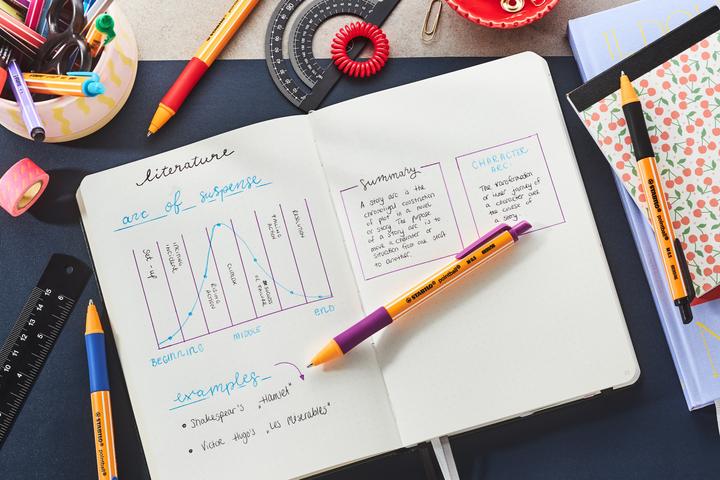 literature
arc of suspense
Set-up
INCITING INCIDENT
RISING ACTION
CLIMAX
FALLING ACTION
RESOLUTION
BEGINNING
MIDDLE
END
examples
• Shakespear's „Hamlet"
• Victor Hugo's „Les Misérables"
Summary
A story arc is the
chronological construction
of plot in a novel
or story. The purpose
of a story arc is to
move a character or
situation from one state
to another.
CHARACTER
ARC:
The transformation
or inner journey of
a character over
the course of
a story.
STABILO pointball
STABILO pointball
STABILO
15
14
13
12
11
6
5